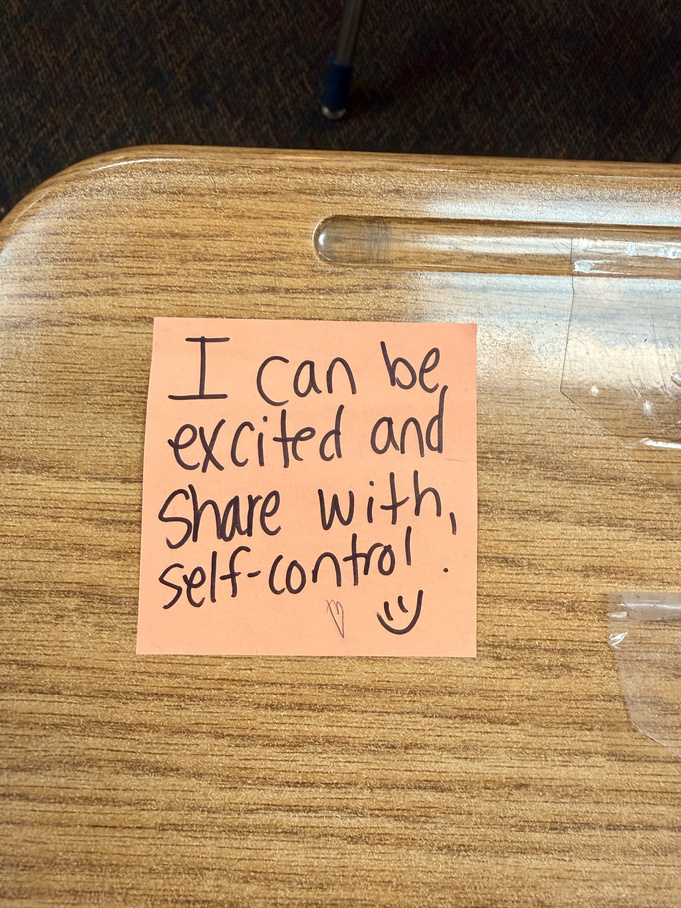 I can be
excited and
share with
self-control!